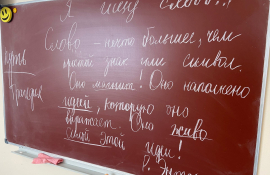 Я ищу слово!!!
Слово – нечто большее, чем
простой знак или символ.
Оно магнит! Оно наполнено
идеей, которую оно
выражает. Оно живо
силой этой
идеи!
путь